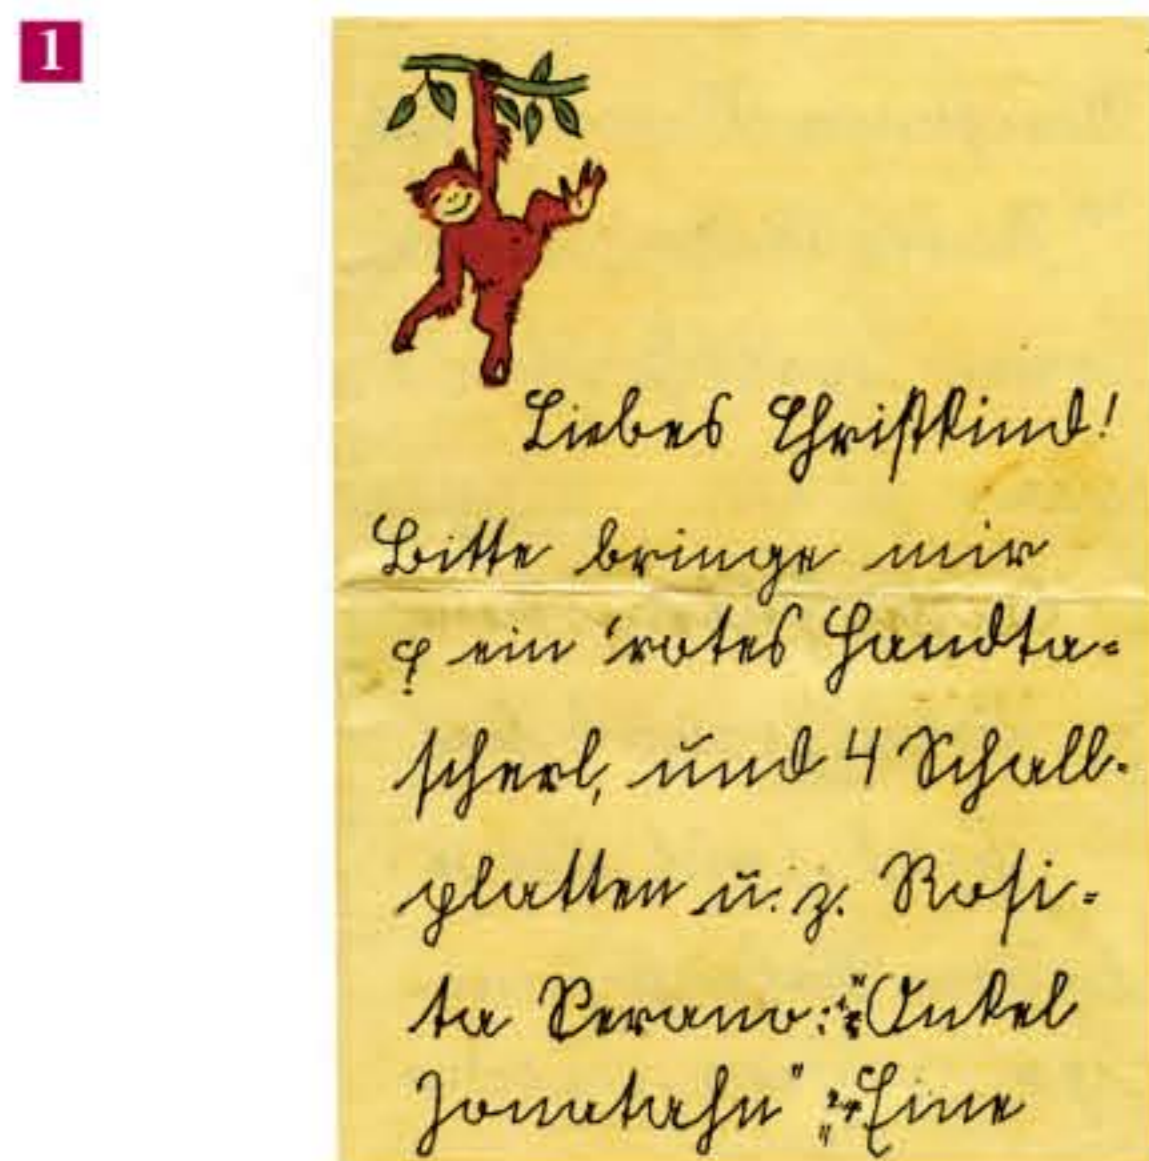 1
Liebes Christkind!
Bitte bringe mir
ein rotes Handta=
scherl, und 4 Schall=
platten u. z. Rosi=
ta Serano: "Onkel
Jonatahn" "Eine